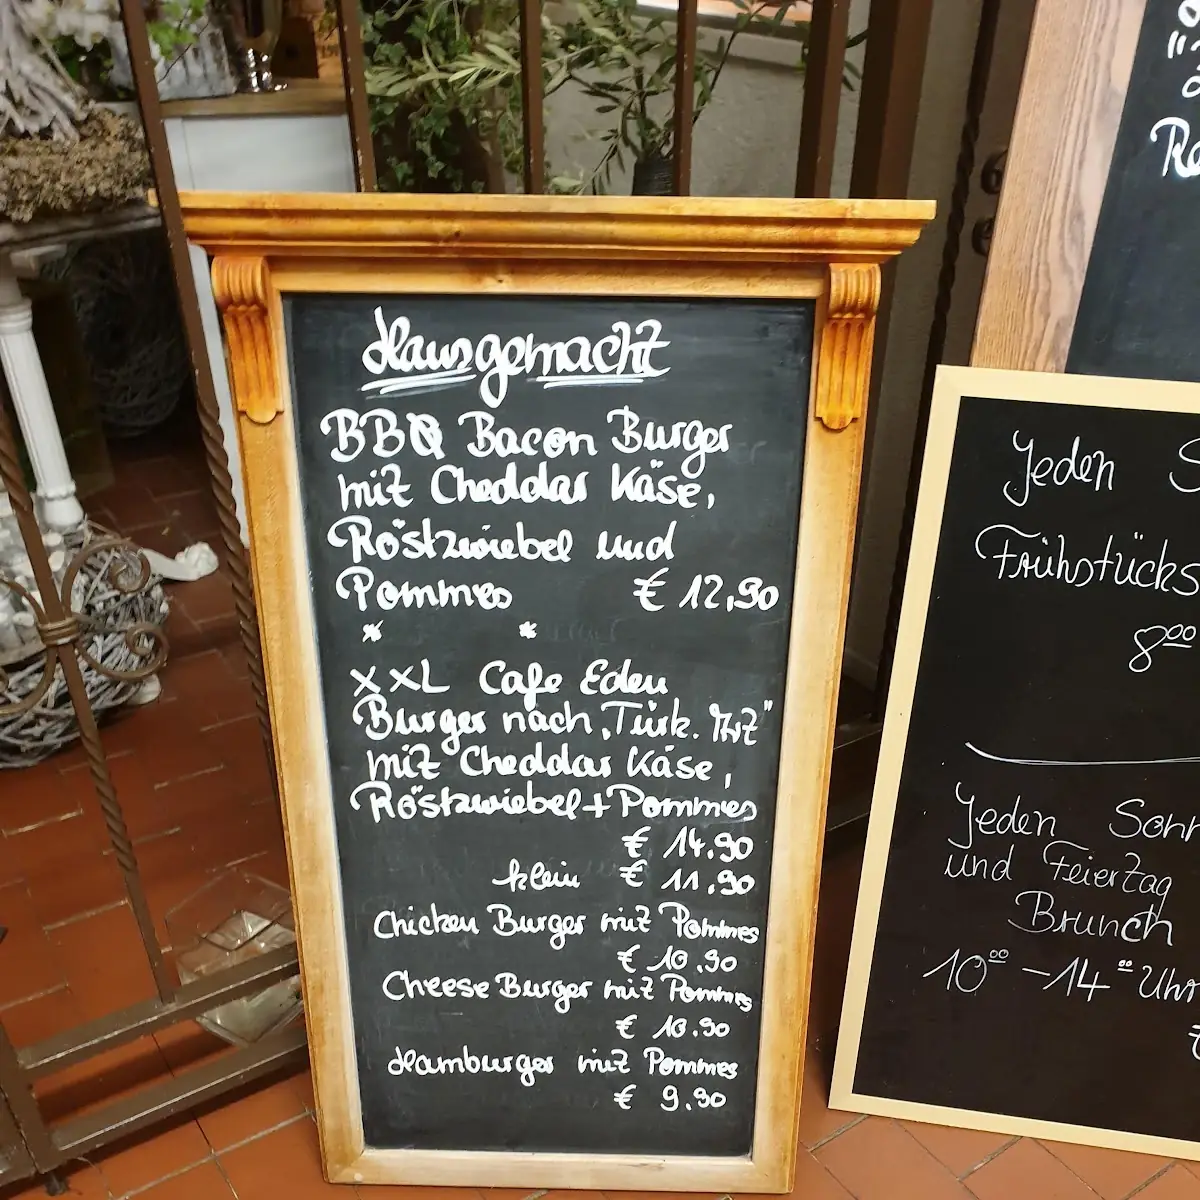 Hausgemacht
BBQ Bacon Burger
mit Cheddar Käse,
Röstzwiebel und
Pommes € 12,90
XXL Cafe Eden
Burger nach „Türk. Art"
mit Cheddar Käse,
Röstzwiebel + Pommes
€ 14.90
klein € 11,90
Chicken Burger mit Pommes
€ 10.90
Cheese Burger mit Pommes
€ 10.90
Hamburger mit Pommes
€ 9.90
Jeden S
Frühstücks
8⁰⁰
Jeden Sonn
und Feiertag
Brunch
10⁰⁰ - 14⁰⁰ Uhr